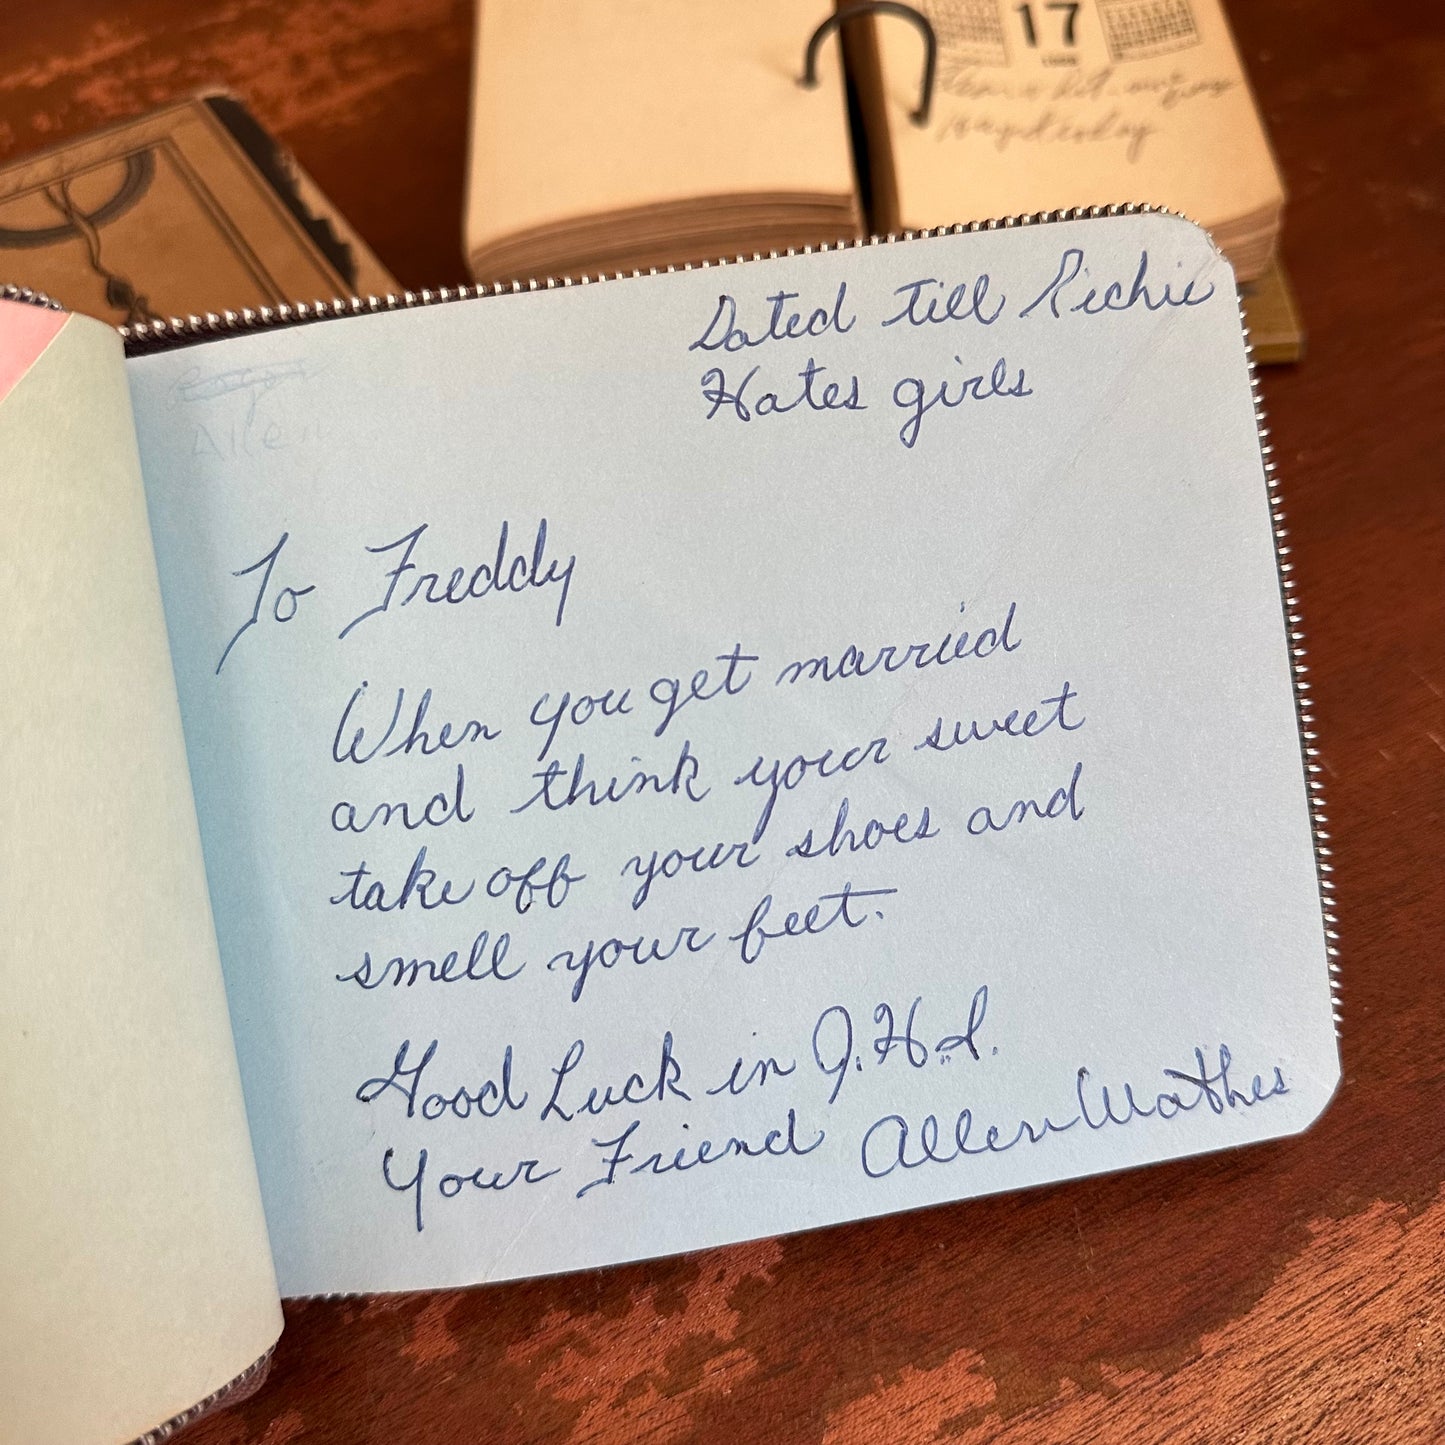 17
Dated till Richie
Hates girls
Allen
To Freddy
When you get married
and think your sweet
take off your shoes and
smell your feet.
Good Luck in J.H.S.
Your Friend Allen Mathes